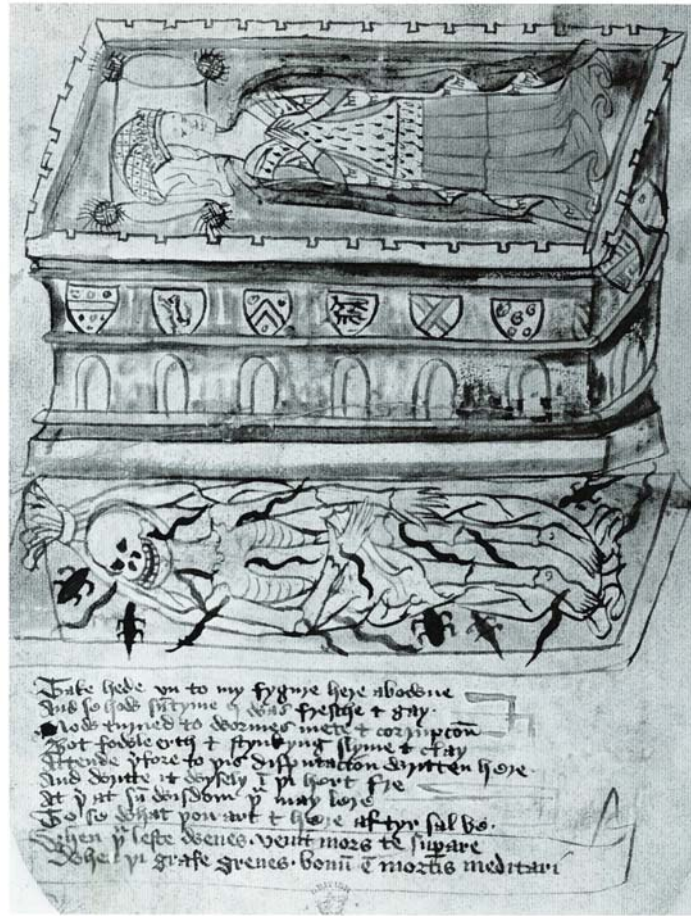 Take hede vn to my fygure here abowne
And se how sūtyme I was fresche & gay.
Now turned to wormes mete & corrupcoñ
Bot fowle erth & stynkyng slyme & clay
Attende þfore to þis disputacion written here.
And writte it wysely ī þi hert fre
At þ at sū wisdom þu may lere
To se what þou art & here aftyr sal be.
When þu leste wenes. venit mors te supare
When þi grafe grenes. bonū ē mortis meditari